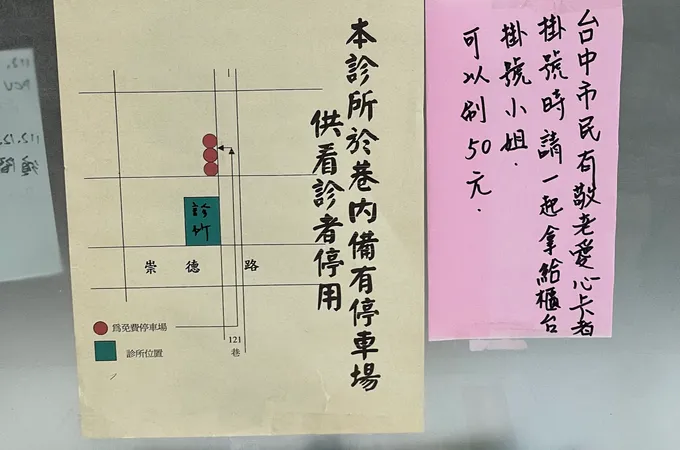 本診所於巷內備有停車場
供看診者停用
診所
崇德路
為免費停車場
診所位置
121
巷
台中市民有敬老愛心卡者
掛號時請一起拿給櫃台
掛號小姐.
可以刷50元.
112.
112.12.